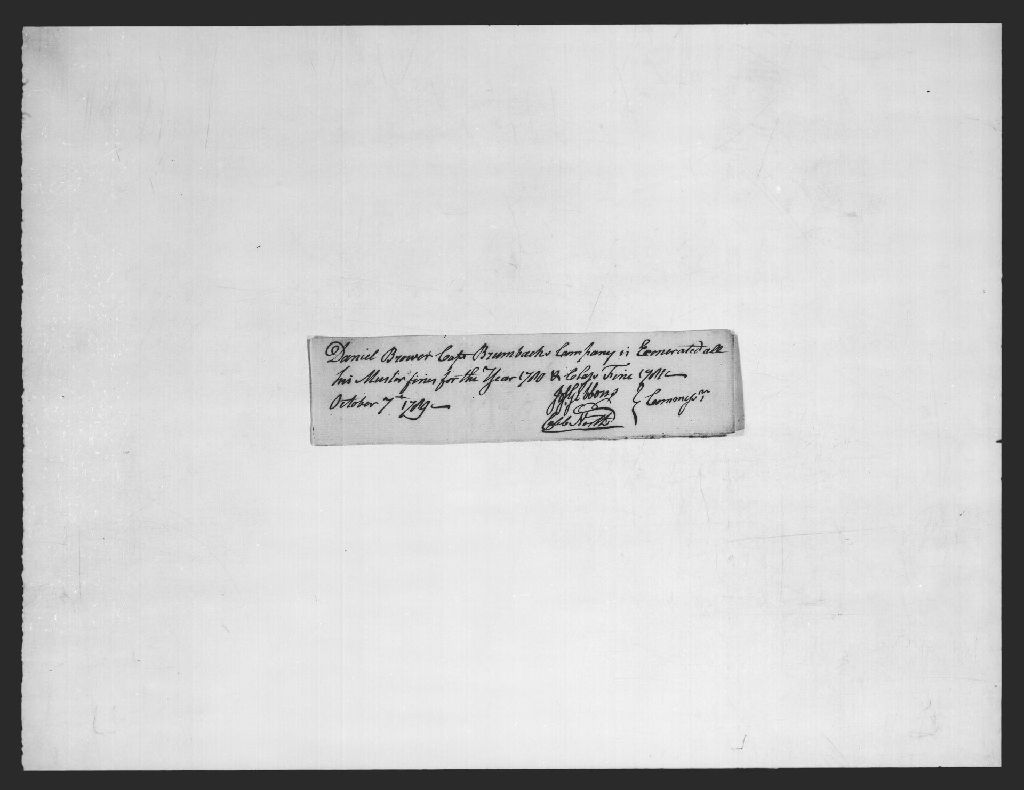 Daniel Brower Capt Brumbachs Company is Exonerated all
his Muster fines for the Year 1780 & Class Fine 1781
October 7th 1789
Jas Gibbons } Commissrs
Caleb North